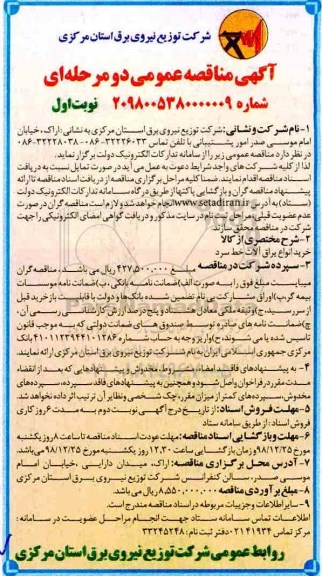 شرکت توزیع نیروی برق استان مرکزی
آگهی مناقصه عمومی دو مرحله‌ای
شماره ۲۰۹۸۰۰۵۳۸۰۰۰۰۰۰۹ نوبت اول
۱-نام شرکت و نشانی: شرکت توزیع نیروی برق استان مرکزی به نشانی: اراک، خیابان
امام موسی صدر امور پشتیبانی با تلفن تماس ۳۲۲۲۶۰۳۳-۰۸۶ ۳۲۲۲۸۰۳۸-۰۸۶
در نظر دارد مناقصه عمومی زیر را از سامانه تدارکات الکترونیک دولت برگزار نماید.
لذا از کلیه شرکت های واجد شرایط دعوت به عمل می آید در صورت تمایل نسبت به دریافت
اسناد مناقصه اقدام نمایند. ضمنا کلیه مراحل برگزاری مناقصه از دریافت اسناد مناقصه تا ارائه
پیشنهاد مناقصه گران و بازگشایی پاکتها از طریق درگاه سامانه تدارکات الکترونیک دولت
(ستاد) به آدرس www.setadiran.ir انجام خواهد شد و لازم است مناقصه گران در صورت
عدم عضویت قبلی، مراحل ثبت نام در سایت مذکور و دریافت گواهی امضای الکترونیکی را جهت
شرکت در مناقصه محقق سازند.
۲-شرح مختصری از کالا
خرید انواع یراق آلات خط سرد
۳-سپرده شرکت در مناقصه مبلغ ۴۲۷,۵۰۰,۰۰۰ ریال می باشد. مناقصه گران
میبایست مبلغ فوق را به صورت الف)ضمانت نامه بانکی، ب)ضمانت نامه موسسات
بیمه گر، پ)اوراق مشارکت بی نام تضمین شده بانک‌ها و دولت با قابلیت باز خرید قبل
از سررسید، ج)وثیقه ملکی معادل هشتاد و پنج درصد ارزش کارشناسی رسمی آن،
چ)ضمانت نامه های صادره توسط صندوق های ضمانت دولتی که به موجب قانون
تاسیس شده یا می شوند، ح)واریز وجه به حساب شماره ۴۱۰۱۱۲۳۹۴۴۱۰۱۲۸۶ بانک
مرکزی جمهوری اسلامی ایران به نام شرکت توزیع نیروی برق استان مرکزی ارائه نمایند.
۴- به پیشنهادهای فاقد امضاء، مشروط، مخدوش و پیشنهادهایی که بعد از انقضاء
مدت مقرر در فراخوان واصل شود و همچنین به پیشنهادهای فاقد سپرده، سپرده‌های
مخدوش، سپرده‌های کمتر از میزان مقرر، چک شخصی و نظایر آن ترتیب اثر داده نخواهد شد.
۵-مهلت فروش اسناد: از تاریخ درج آگهی نوبت دوم به مدت ۶ روز کاری
فروش اسناد: از طریق سامانه ستاد
۶-مهلت و بازگشایی اسناد مناقصه: مهلت عودت اسناد مناقصه تا ساعت ۸ روز یکشنبه
مورخ ۹۸/۱۲/۲۵ و زمان بازگشایی ساعت ۱۲,۳۰ روز یکشنبه مورخ ۹۸/۱۲/۲۵ می باشد.
۷-آدرس محل برگزاری مناقصه: اراک، میدان دارایی، خیابان امام
موسی صدر، سالن کنفرانس شرکت توزیع نیروی برق استان مرکزی
۸-مبلغ برآوردی مناقصه ۸,۵۵۰,۰۰۰,۰۰۰ ریال می باشد.
۹-سایر اطلاعات و جزئیات مربوطه در اسناد مناقصه مندرج است.
اطلاعات تماس سامانه ستاد جهت انجام مراحل عضویت در سامانه: مرکز
تماس ۴۱۹۳۴-۰۲۱ دفتر ثبت نام: ۳۳۲۴۵۲۴۸
روابط عمومی شرکت توزیع نیروی برق استان مرکزی